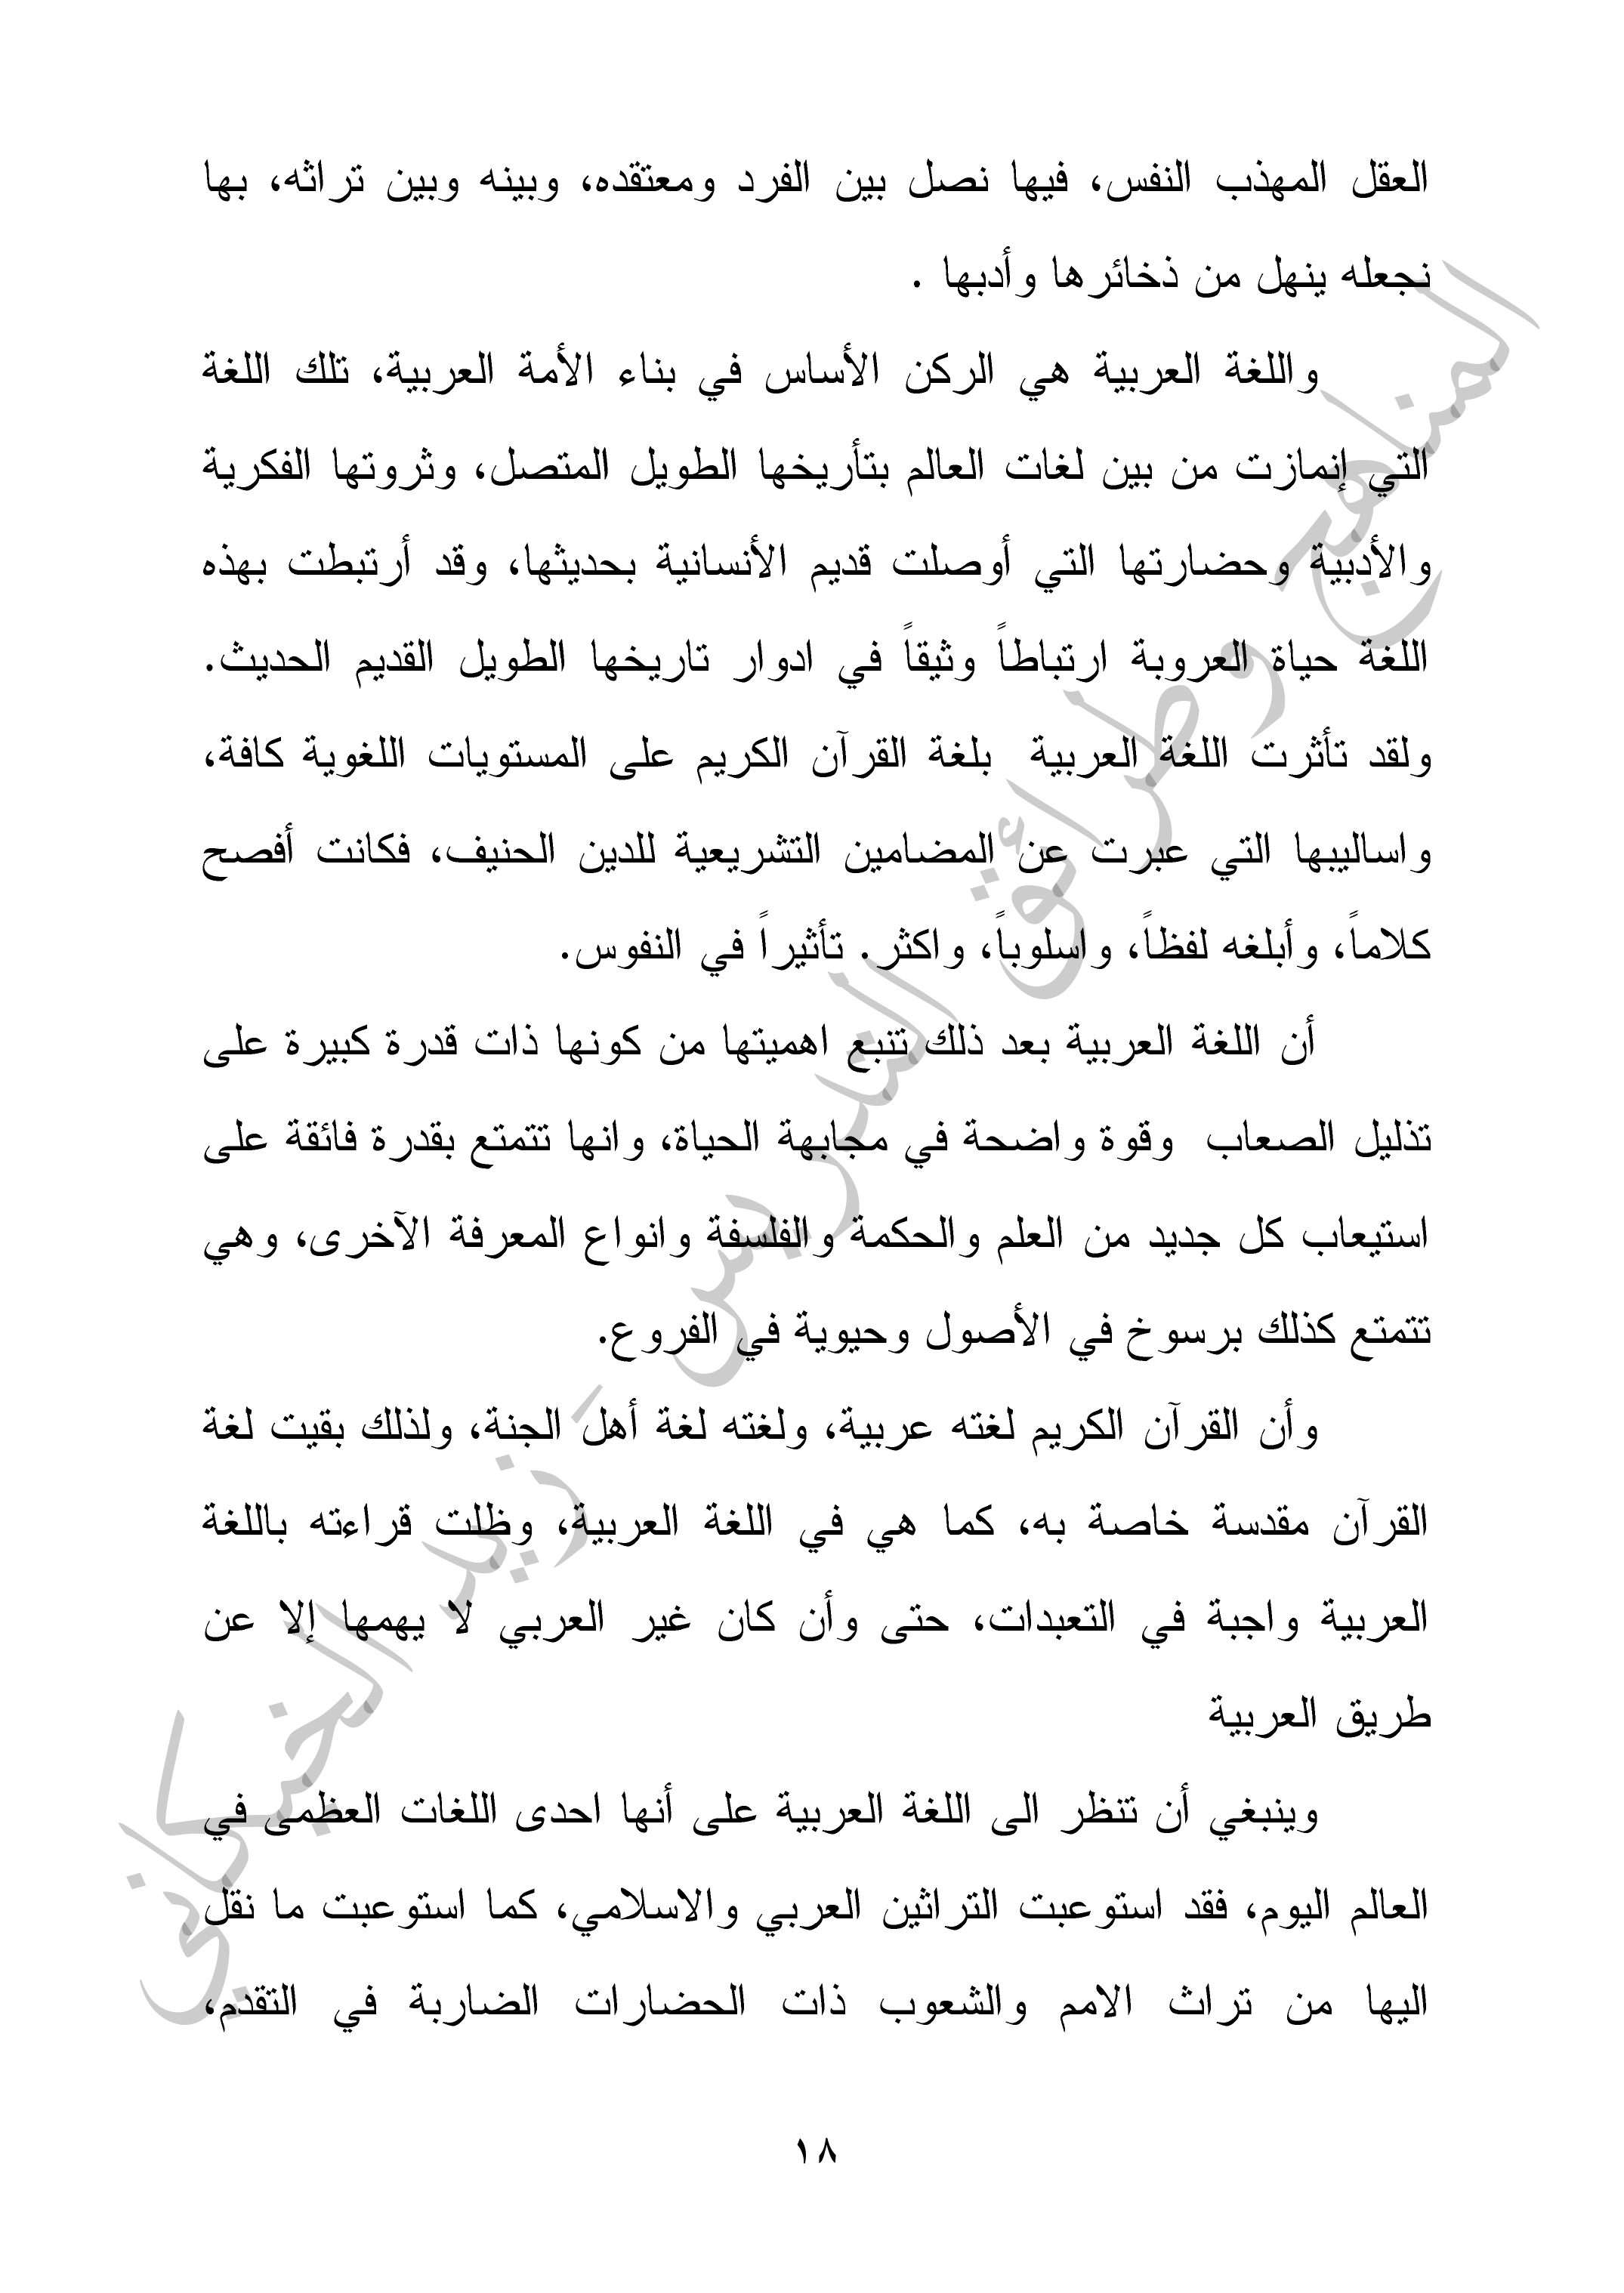 العقل المهذب النفس، فيها نصل بين الفرد ومعتقده، وبينه وبين تراثه، بها
نجعله ينهل من ذخائرها وأدبها .
واللغة العربية هي الركن الأساس في بناء الأمة العربية، تلك اللغة
التي إنمازت من بين لغات العالم بتأريخها الطويل المتصل، وثروتها الفكرية
والأدبية وحضارتها التي أوصلت قديم الأنسانية بحديثها، وقد أرتبطت بهذه
اللغة حياة العروبة ارتباطاً وثيقاً في ادوار تاريخها الطويل القديم الحديث.
ولقد تأثرت اللغة العربية بلغة القرآن الكريم على المستويات اللغوية كافة،
واساليبها التي عبرت عن المضامين التشريعية للدين الحنيف، فكانت أفصح
كلاماً، وأبلغه لفظاً، واسلوباً، واكثر. تأثيراً في النفوس.
أن اللغة العربية بعد ذلك تنبع اهميتها من كونها ذات قدرة كبيرة على
تذليل الصعاب وقوة واضحة في مجابهة الحياة، وانها تتمتع بقدرة فائقة على
استيعاب كل جديد من العلم والحكمة والفلسفة وانواع المعرفة الآخرى، وهي
تتمتع كذلك برسوخ في الأصول وحيوية في الفروع.
وأن القرآن الكريم لغته عربية، ولغته لغة أهل الجنة، ولذلك بقيت لغة
القرآن مقدسة خاصة به، كما هي في اللغة العربية، وظلت قراءته باللغة
العربية واجبة في التعبدات، حتى وأن كان غير العربي لا يهمها إلا عن
طريق العربية
وينبغي أن تنظر الى اللغة العربية على أنها احدى اللغات العظمى في
العالم اليوم، فقد استوعبت التراثين العربي والاسلامي، كما استوعبت ما نقل
اليها من تراث الامم والشعوب ذات الحضارات الضاربة في التقدم،
١٨
المناهج وطرائق التدريس - زيد الخيكاني